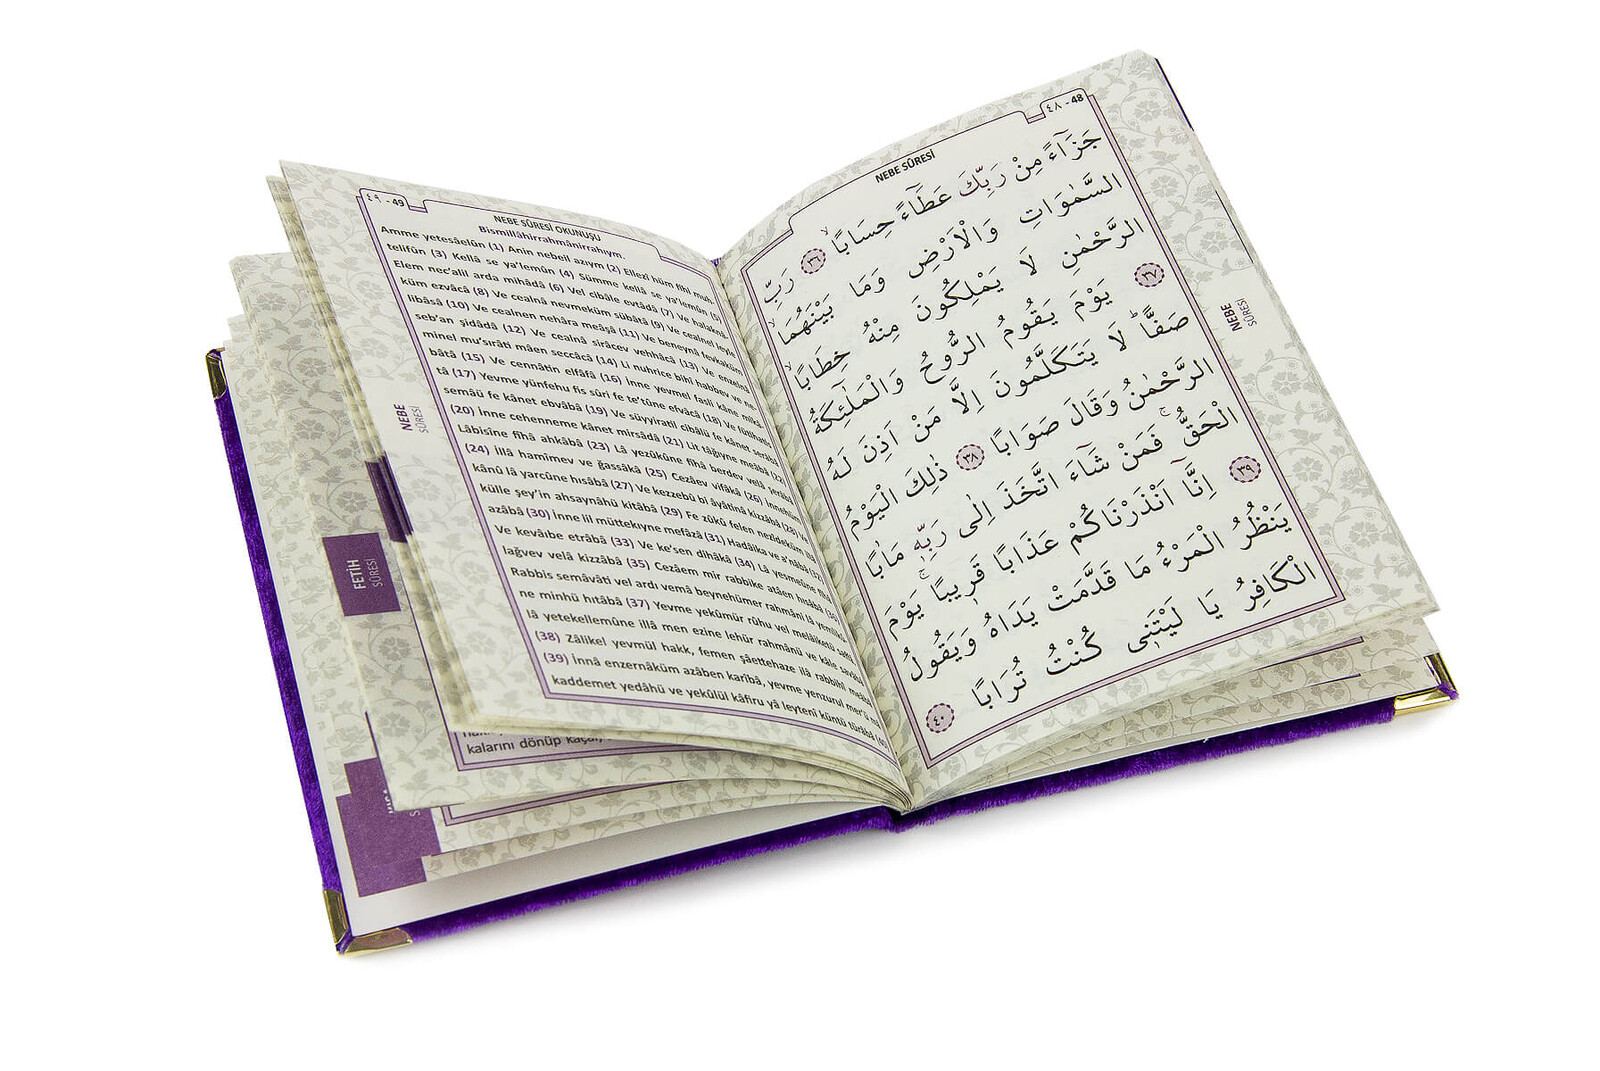 ٤٨ - 48
NEBE SÛRESİ
جَزَٓاءً مِنْ رَبِّكَ عَطَٓاءً حِسَابًاۙ ﴿٣٦﴾ رَبِّ
السَّمٰوَاتِ وَالْاَرْضِ وَمَا بَيْنَهُمَا
الرَّحْمٰنِ لَا يَمْلِكُونَ مِنْهُ خِطَابًاۙ
﴿٣٧﴾ يَوْمَ يَقُومُ الرُّوحُ وَالْمَلٰٓئِكَةُ
صَفًّاۜ لَا يَتَكَلَّمُونَ اِلَّا مَنْ اَذِنَ لَهُ
الرَّحْمٰنُ وَقَالَ صَوَابًا ﴿٣٨﴾ ذٰلِكَ الْيَوْمُ
الْحَقُّۚ فَمَنْ شَٓاءَ اتَّخَذَ اِلٰى رَبِّهٖ مَاٰبًا
﴿٣٩﴾ اِنَّٓا اَنْذَرْنَاكُمْ عَذَابًا قَرٖيبًاۚ يَوْمَ
يَنْظُرُ الْمَرْءُ مَا قَدَّمَتْ يَدَاهُ وَيَقُولُ
الْكَافِرُ يَا لَيْتَنٖى كُنْتُ تُرَابًا ﴿٤٠﴾
NEBE
SÛRESİ
٤٩ - 49
NEBE SÛRESİ OKUNUŞU
Bismillâhirrahmânirrahıym.
Amme yetesâelûn (1) Anin nebeil azıym (2) Ellezî hüm fîhî muh-
telifûn (3) Kellâ se ya'lemûn (4) Sümme kellâ se ya'lemûn (5)
Elem nec'alil arda mihâdâ (6) Vel cibâle evtâdâ (7) Ve halaknâ-
küm ezvâcâ (8) Ve cealnâ nevmeküm sübâtâ (9) Ve cealnel leyle
libâsâ (10) Ve cealnen nehâra meâşâ (11) Ve beneynâ fevkaküm
seb'an şidâdâ (12) Ve cealnâ sirâcev vehhâcâ (13) Ve enzelnâ
minel mu'sırâti mâen seccâcâ (14) Li nuhrice bihî habbev ve ne-
bâtâ (15) Ve cennâtin elfâfâ (16) İnne yevmel fasli kâne mîka-
tâ (17) Yevme yünfehu fis sûri fe te'tûne efvâcâ (18) Ve fütihatis
semâü fe kânet ebvâbâ (19) Ve süyyiratil cibâlü fe kânet serâbâ
(20) İnne cehenneme kânet mirsâdâ (21) Lit tâğıyne meâbâ (22)
Lâbisîne fîhâ ahkâbâ (23) Lâ yezûkûne fîhâ berdev velâ şerâbâ
(24) İllâ hamîmev ve ğassâkâ (25) Cezâev vifâkâ (26) İnnehüm
kânû lâ yarcûne hısâbâ (27) Ve kezzebû bi âyâtinâ kizzâbâ (28) Ve
külle şey'in ahsaynâhü kitâbâ (29) Fe zûkû felen nezîdeküm illâ
azâbâ (30) İnne lil müttekıyne mefâzâ (31) Hadâika ve a'nâbâ (32)
Ve kevâıbe etrâbâ (33) Ve ke'sen dihâkâ (34) Lâ yesmeûne fîhâ
lağvev velâ kizzâbâ (35) Cezâem mir rabbike atâen hısâbâ (36)
Rabbis semâvâti vel ardı vemâ beynehümer rahmâni lâ yemlikû-
ne minhü hıtâbâ (37) Yevme yekûmür rûhu vel melâiketü saffâ
lâ yetekellemûne illâ men ezine lehür rahmânü ve kâle savâbâ
(38) Zâlikel yevmül hakk, femen şâettehaze ilâ rabbihî meâbâ
(39) İnnâ enzernâküm azâben karîbâ, yevme yenzurul mer'ü mâ
kaddemet yedâhü ve yekûlül kâfiru yâ leytenî küntü türâbâ (40)
NEBE
SÛRESİ
FETİH
SÛRESİ
kalarını dönüp kaçar,